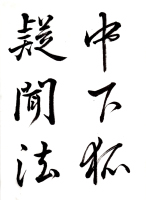 中下狐
疑聞法